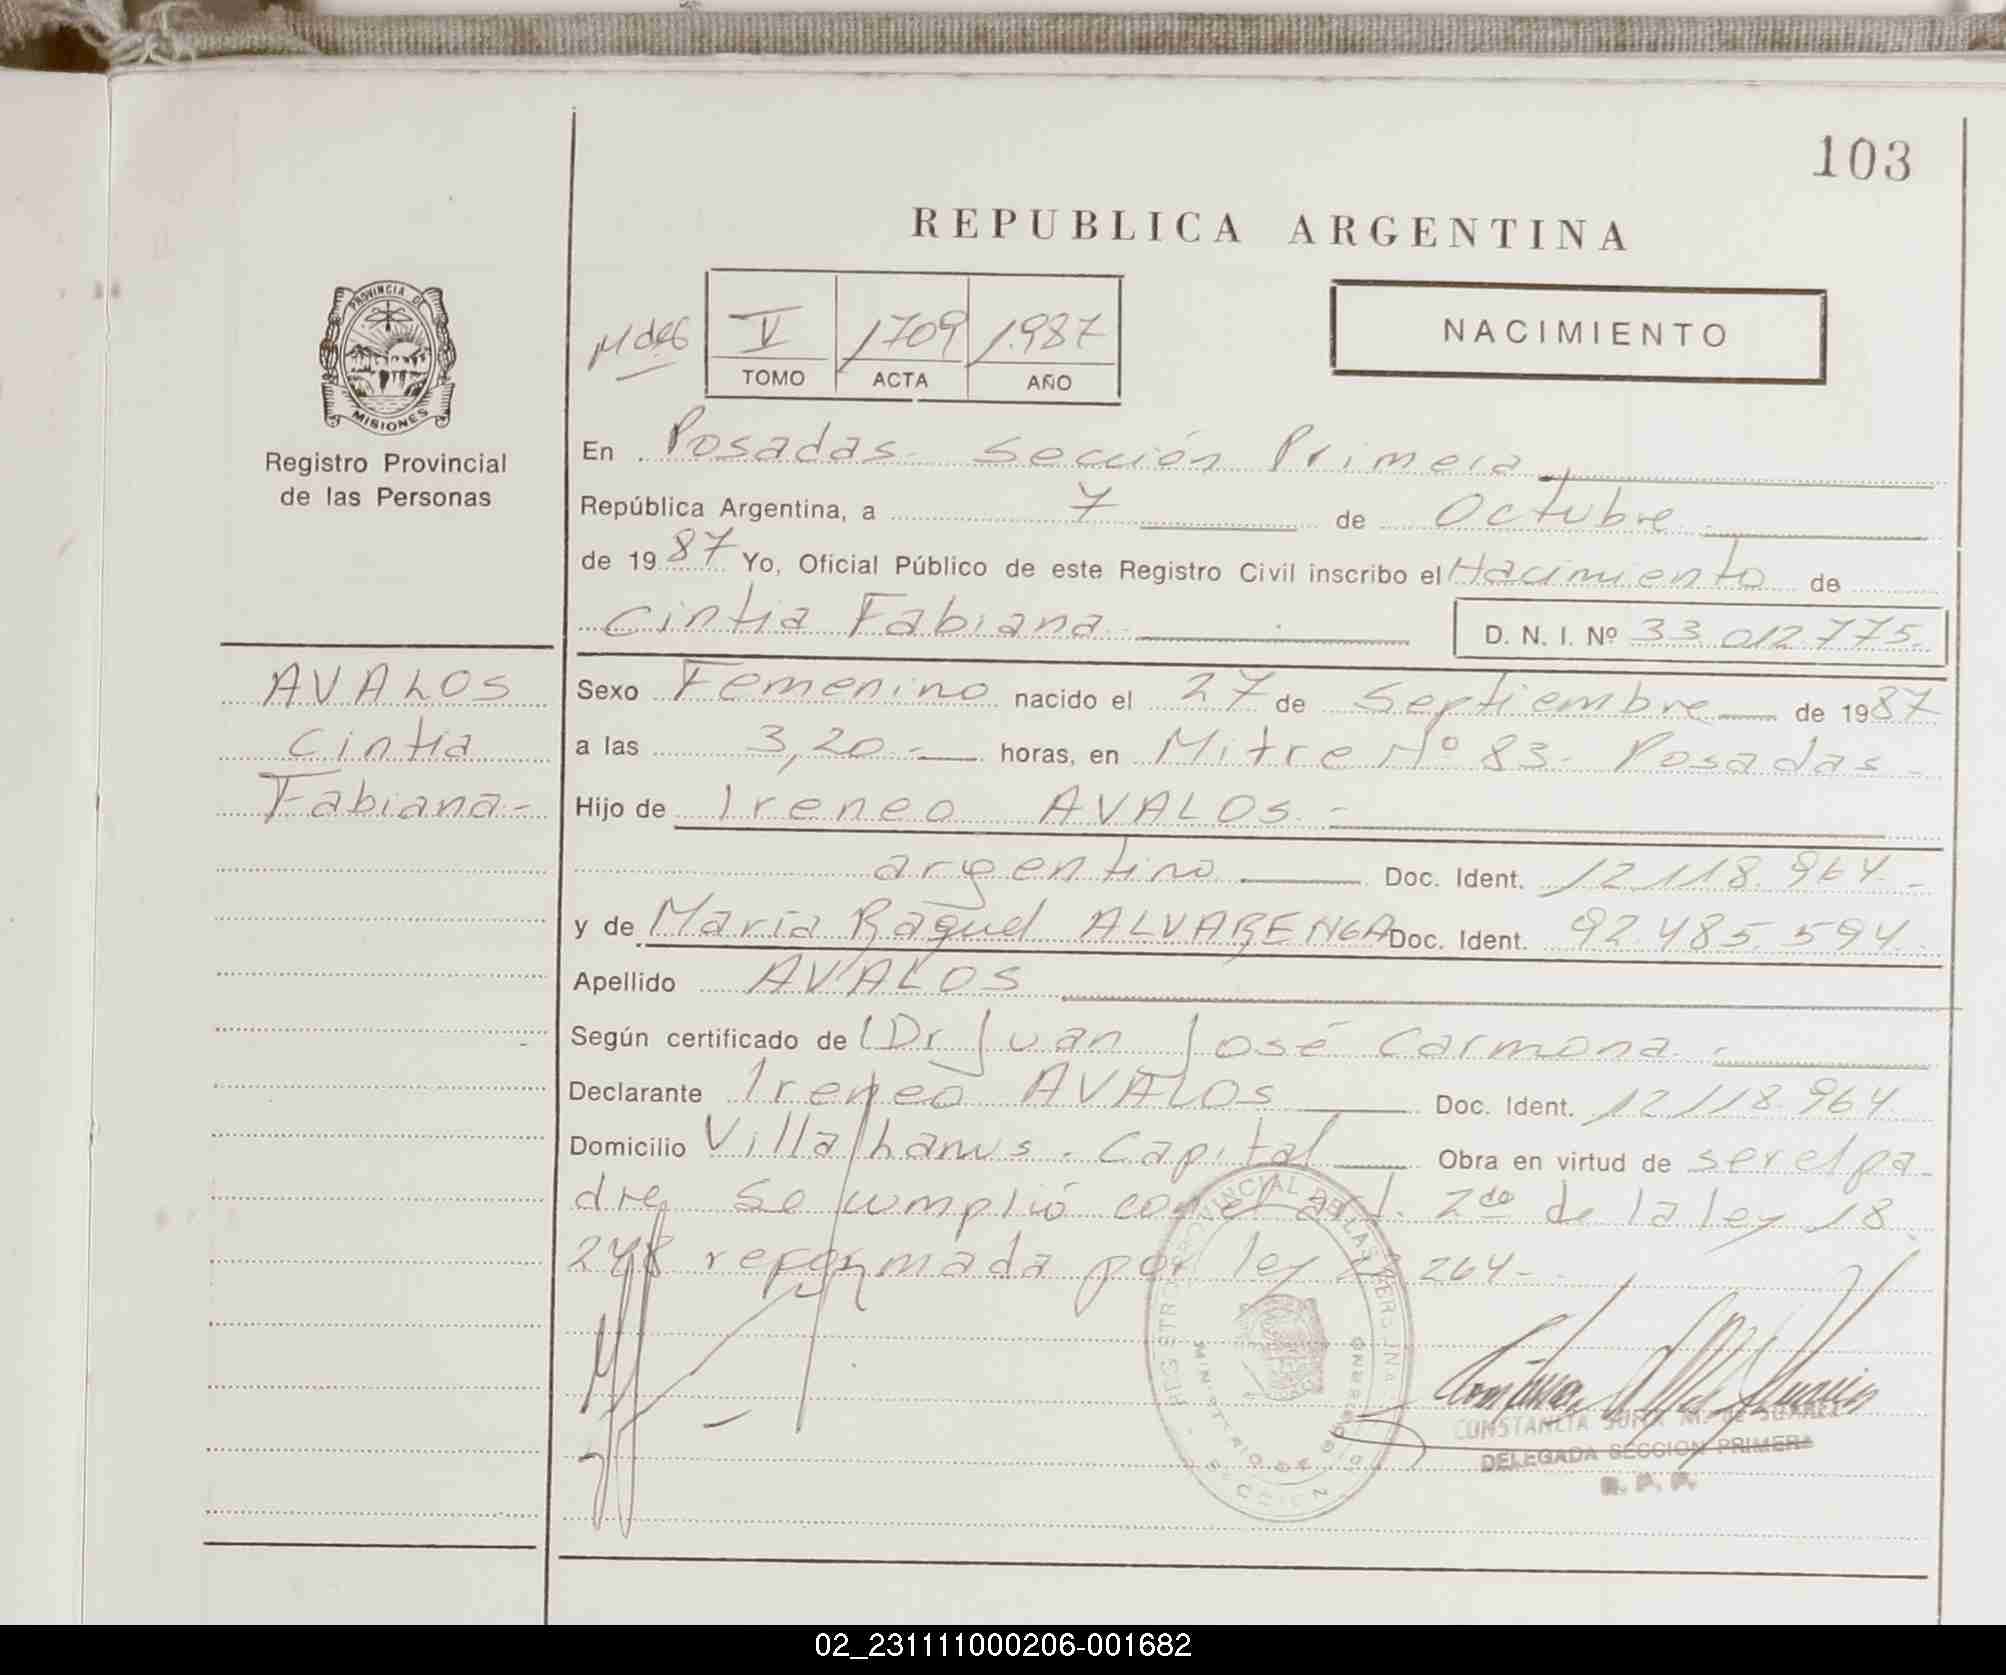 103
REPUBLICA ARGENTINA
PROVINCIA DE
MISIONES
Registro Provincial
de las Personas
V 1709 1.987
TOMO ACTA AÑO
NACIMIENTO
En Posadas - Sección Primera
República Argentina, a 7 de Octubre
de 1987 Yo, Oficial Público de este Registro Civil inscribo el Nacimiento de
Cintia Fabiana D. N. I. Nº 33.012.775.
AVALOS
Cintia
Fabiana.-
Sexo Femenino nacido el 27 de Septiembre de 1987
a las 3,20.- horas, en Mitre Nº 83- Posadas-
Hijo de Ireneo AVALOS.-
argentino Doc. Ident. 12.118.964.-
y de María Raquel ALVARENGA Doc. Ident. 92.485.594.
Apellido AVALOS
Según certificado de Dr Juan José Carmona.-
Declarante Ireneo AVALOS Doc. Ident. 12.118.964.
Domicilio Villa Lanus. Capital Obra en virtud de ser el pa-
dre, se cumplió con el art. 2do de la ley 18.
248 reformada por ley 264-
CONSTANCIA M. de SUAREZ
DELEGADA SECCION PRIMERA
R. P. P.
02_231111000206-001682